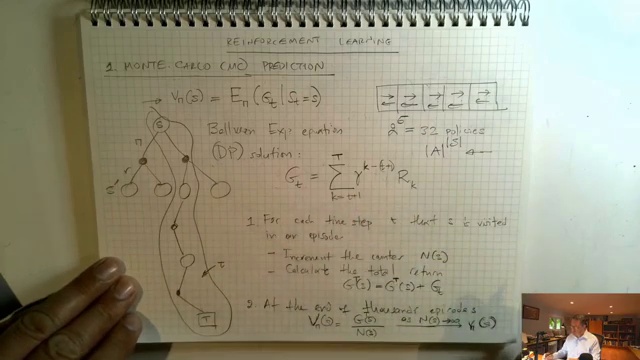 REINFORCEMENT LEARNING
1. MONTE-CARLO (MC) PREDICTION
→ Vπ(s) = Eπ(Gt | St = s)
Bellman Exp. equation
(DP) solution:
Gt = Σ γ^(k-(t+1)) Rk
T
k=t+1
→ → → → →
← ← ← ← ←
2^5 = 32 policies
|A|^|S| ←
S
π
s'
r
τ
T
1. For each time step t that s is visited
in an episode
- Increment the counter N(s)
- Calculate the total return
G^T(s) = G^T(s) + Gt
2. At the end of thousands episodes
Vπ(s) = G(s) / N(s) as N(s) → ∞ Vπ(s)